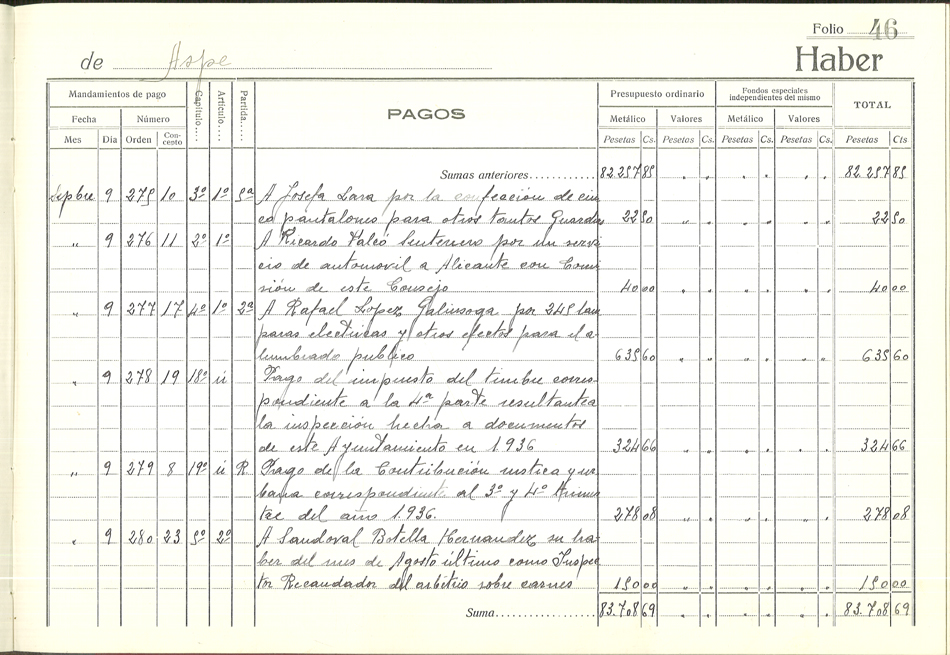 Folio 46
de Aspe Haber
Mandamientos de pago Capítulo.... Artículo.... Partida.... PAGOS Presupuesto ordinario Fondos especiales independientes del mismo TOTAL
Fecha Número Metálico Valores Metálico Valores
Mes Día Orden Concepto Pesetas Cs. Pesetas Cs. Pesetas Cs. Pesetas Cs. Pesetas Cts
Sumas anteriores............ 82.257 85 " " " " " " 82.257 85
Sepbre 9 275 10 3º 1º 5ª A Josefa Lara por la confeccion de cin
co pantalones para otros tantos Guardas 22 50 " " " " " " 22 50
" 9 276 11 2º 1º A Ricardo Falcó Senterero por un servi
cio de automovil a Alicante con Comi
sión de este Consejo 40 00 " " " " " " 40 00
" 9 277 17 4º 1º 2ª A Rafael Lopez Galiussoga por 245 lam
paras electricas y otros efectos para el a
lumbrado publico 635 60 " " " " " " 635 60
" 9 278 19 18º ú Pago del impuesto del timbre corres-
pondiente a la 4ª parte resultante a
la inspección hecha a documentos
de este Ayuntamiento en 1936 324 66 " " " " " " 324 66
" 9 279 8 19º ú R Pago de la Contribución rustica y ur
bana correspondiente al 3º y 4º trimes
tre del año 1.936. 278 08 " " " " " " 278 08
" 9 280 23 5º 2º A Sandoval Botella Hernandez su ha-
ber del mes de Agosto último como Inspec
tor Recaudador del arbitrio sobre carnes 150 00 " " " " " " 150 00
Suma...................... 83.708 69 " " " " " " 83.708 69